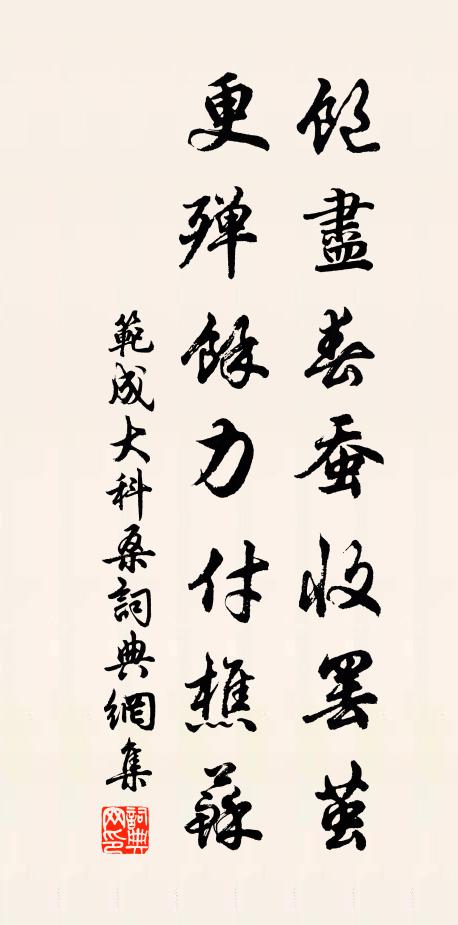 飽盡春蚕收罢茧
更殫餘力付樵蘇
範成大科桑詞典網集
詞典网印